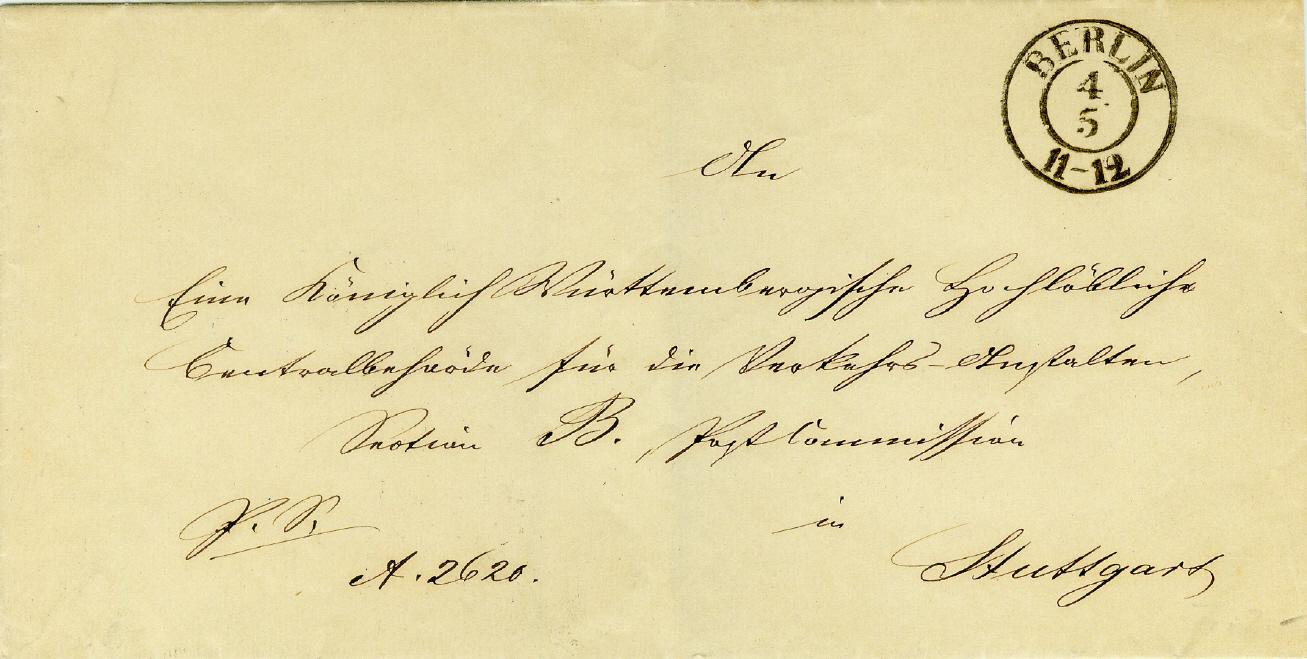 BERLIN
4
5
11-12
An
Eine Königlich Württembergische Hochlöbliche
Centralbehörde für die Verkehrs-Anstalten,
Section B. Post Commission
P. S.
in
A. 2620.
Stuttgart